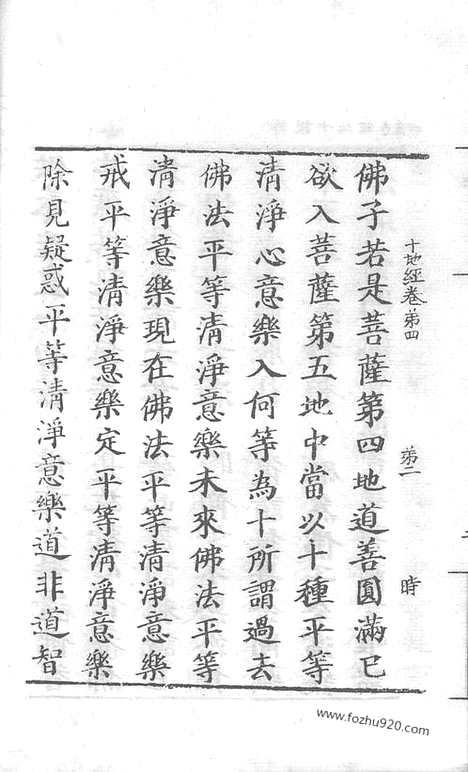 十地經卷第四 第二 時
佛子若是菩薩第四地道善圓滿已
欲入菩薩第五地中當以十種平等
清淨心意樂入何等為十所謂過去
佛法平等清淨意樂未來佛法平等
清淨意樂現在佛法平等清淨意樂
戒平等清淨意樂定平等清淨意樂
除見疑惑平等清淨意樂道非道智
www.fozhu920.com